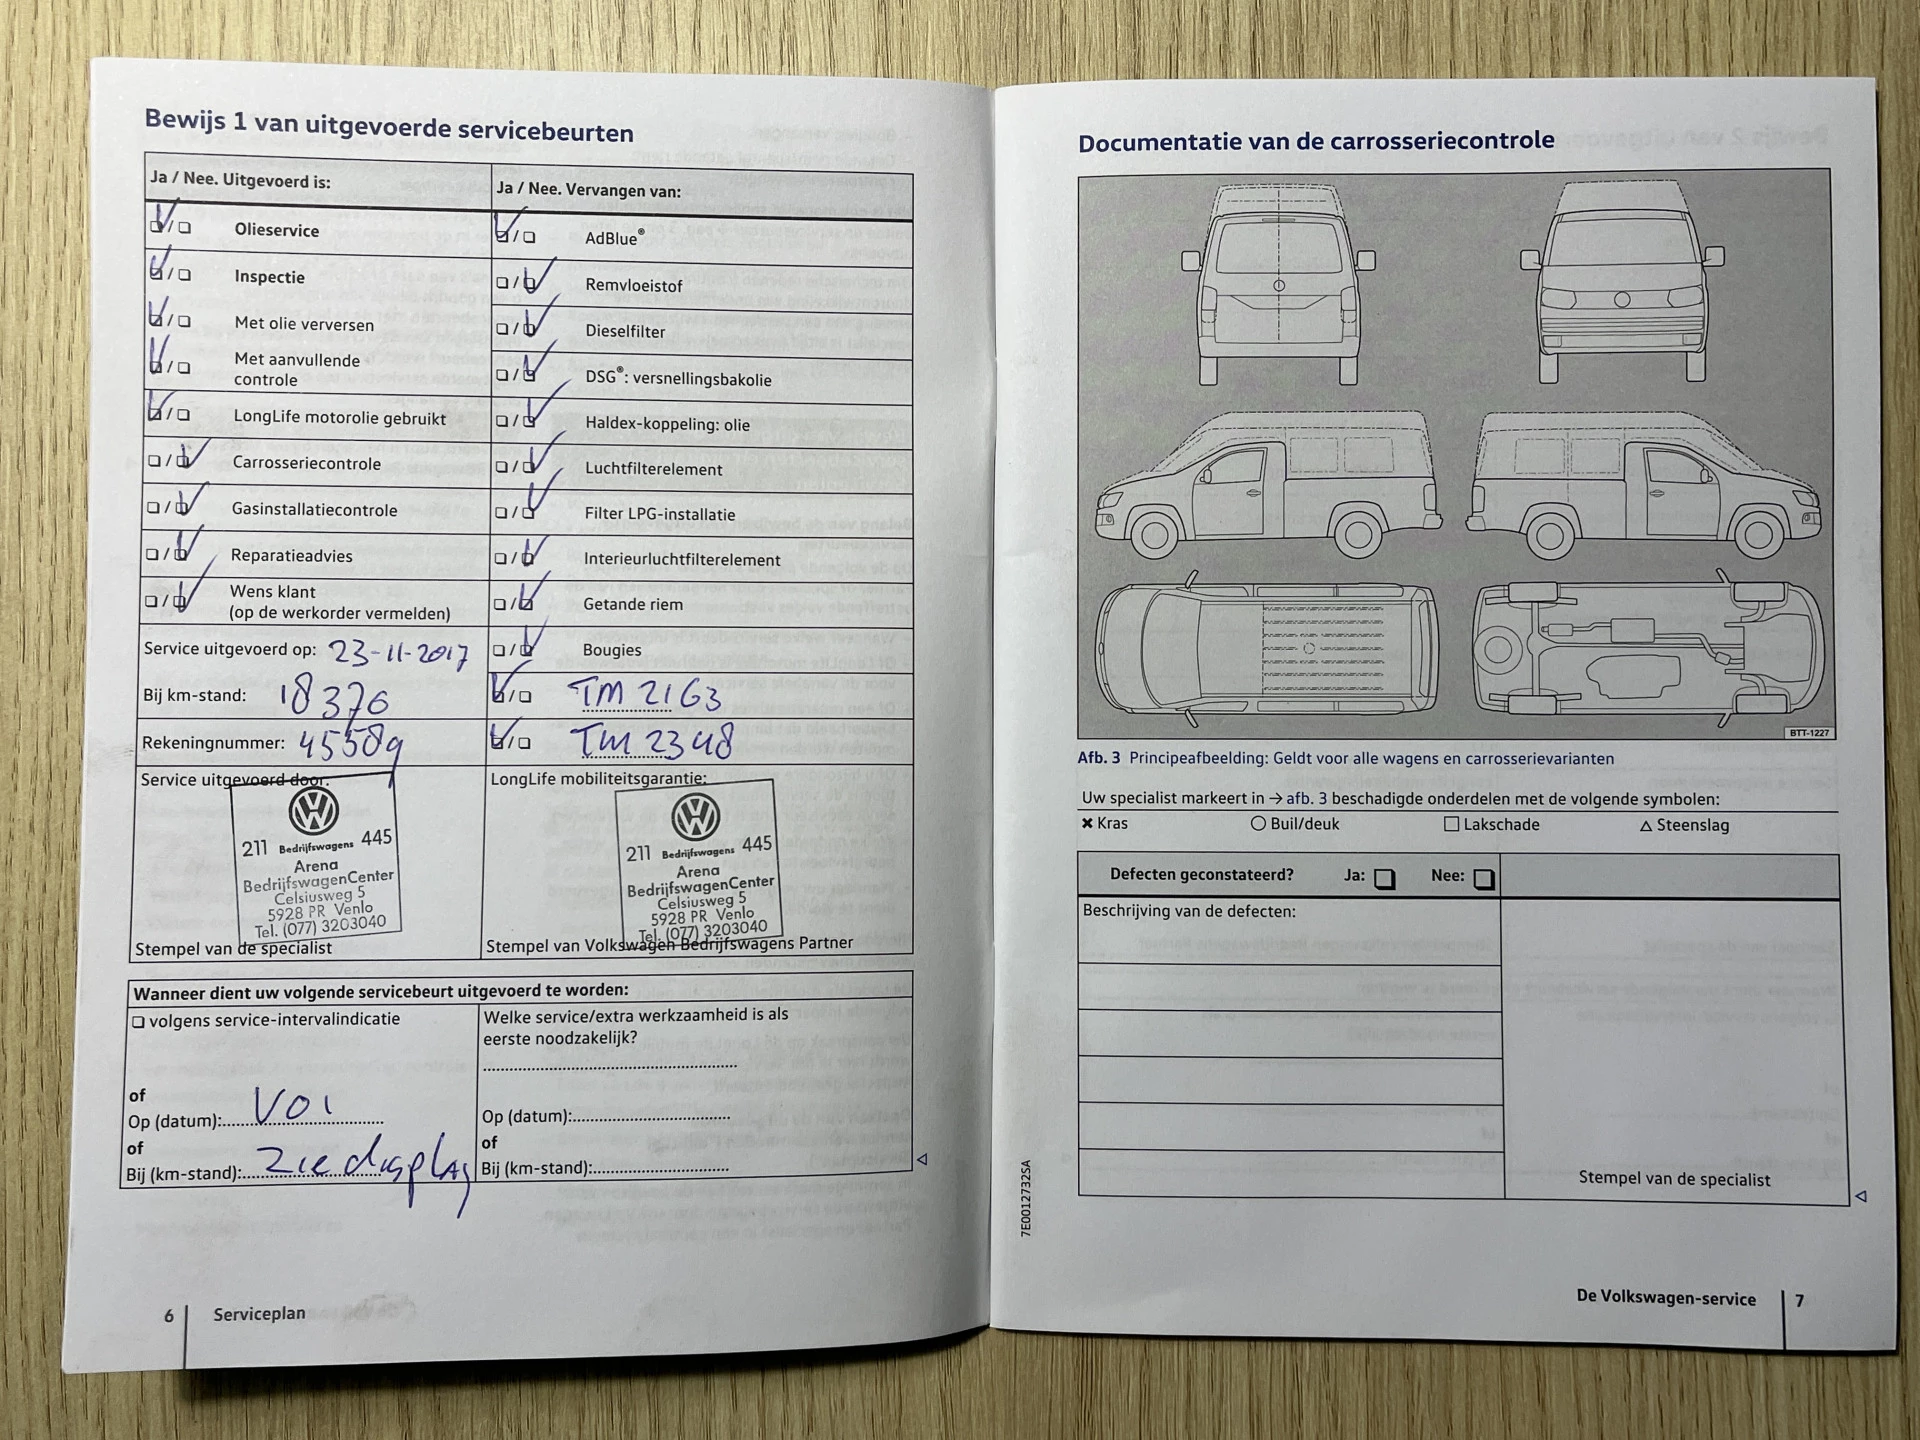 Bewijs 1 van uitgevoerde servicebeurten
Ja / Nee. Uitgevoerd is:
Olieservice
Inspectie
Met olie verversen
Met aanvullende
controle
LongLife motorolie gebruikt
Carrosseriecontrole
Gasinstallatiecontrole
Reparatieadvies
Wens klant
(op de werkorder vermelden)
Service uitgevoerd op: 23-11-2017
Bij km-stand: 18376
Rekeningnummer: 45589
Service uitgevoerd door:
211 Bedrijfswagens 445
Arena
BedrijfswagenCenter
Celsiusweg 5
5928 PR Venlo
Tel. (077) 3203040
Stempel van de specialist
Ja / Nee. Vervangen van:
AdBlue®
Remvloeistof
Dieselfilter
DSG®: versnellingsbakolie
Haldex-koppeling: olie
Luchtfilterelement
Filter LPG-installatie
Interieurluchtfilterelement
Getande riem
Bougies
TM 2163
TM 2348
LongLife mobiliteitsgarantie:
211 Bedrijfswagens 445
Arena
BedrijfswagenCenter
Celsiusweg 5
5928 PR Venlo
Tel. (077) 3203040
Stempel van Volkswagen Bedrijfswagens Partner
Wanneer dient uw volgende servicebeurt uitgevoerd te worden:
volgens service-intervalindicatie
of
Op (datum): VOI
of
Bij (km-stand): Zie display
Welke service/extra werkzaamheid is als
eerste noodzakelijk?
Op (datum):
of
Bij (km-stand):
6 Serviceplan
Documentatie van de carrosseriecontrole
BTT-1227
Afb. 3 Principeafbeelding: Geldt voor alle wagens en carrosserievarianten
Uw specialist markeert in → afb. 3 beschadigde onderdelen met de volgende symbolen:
✖ Kras ○ Buil/deuk □ Lakschade △ Steenslag
Defecten geconstateerd? Ja: Nee:
Beschrijving van de defecten:
Stempel van de specialist
7E0012732SA
De Volkswagen-service 7